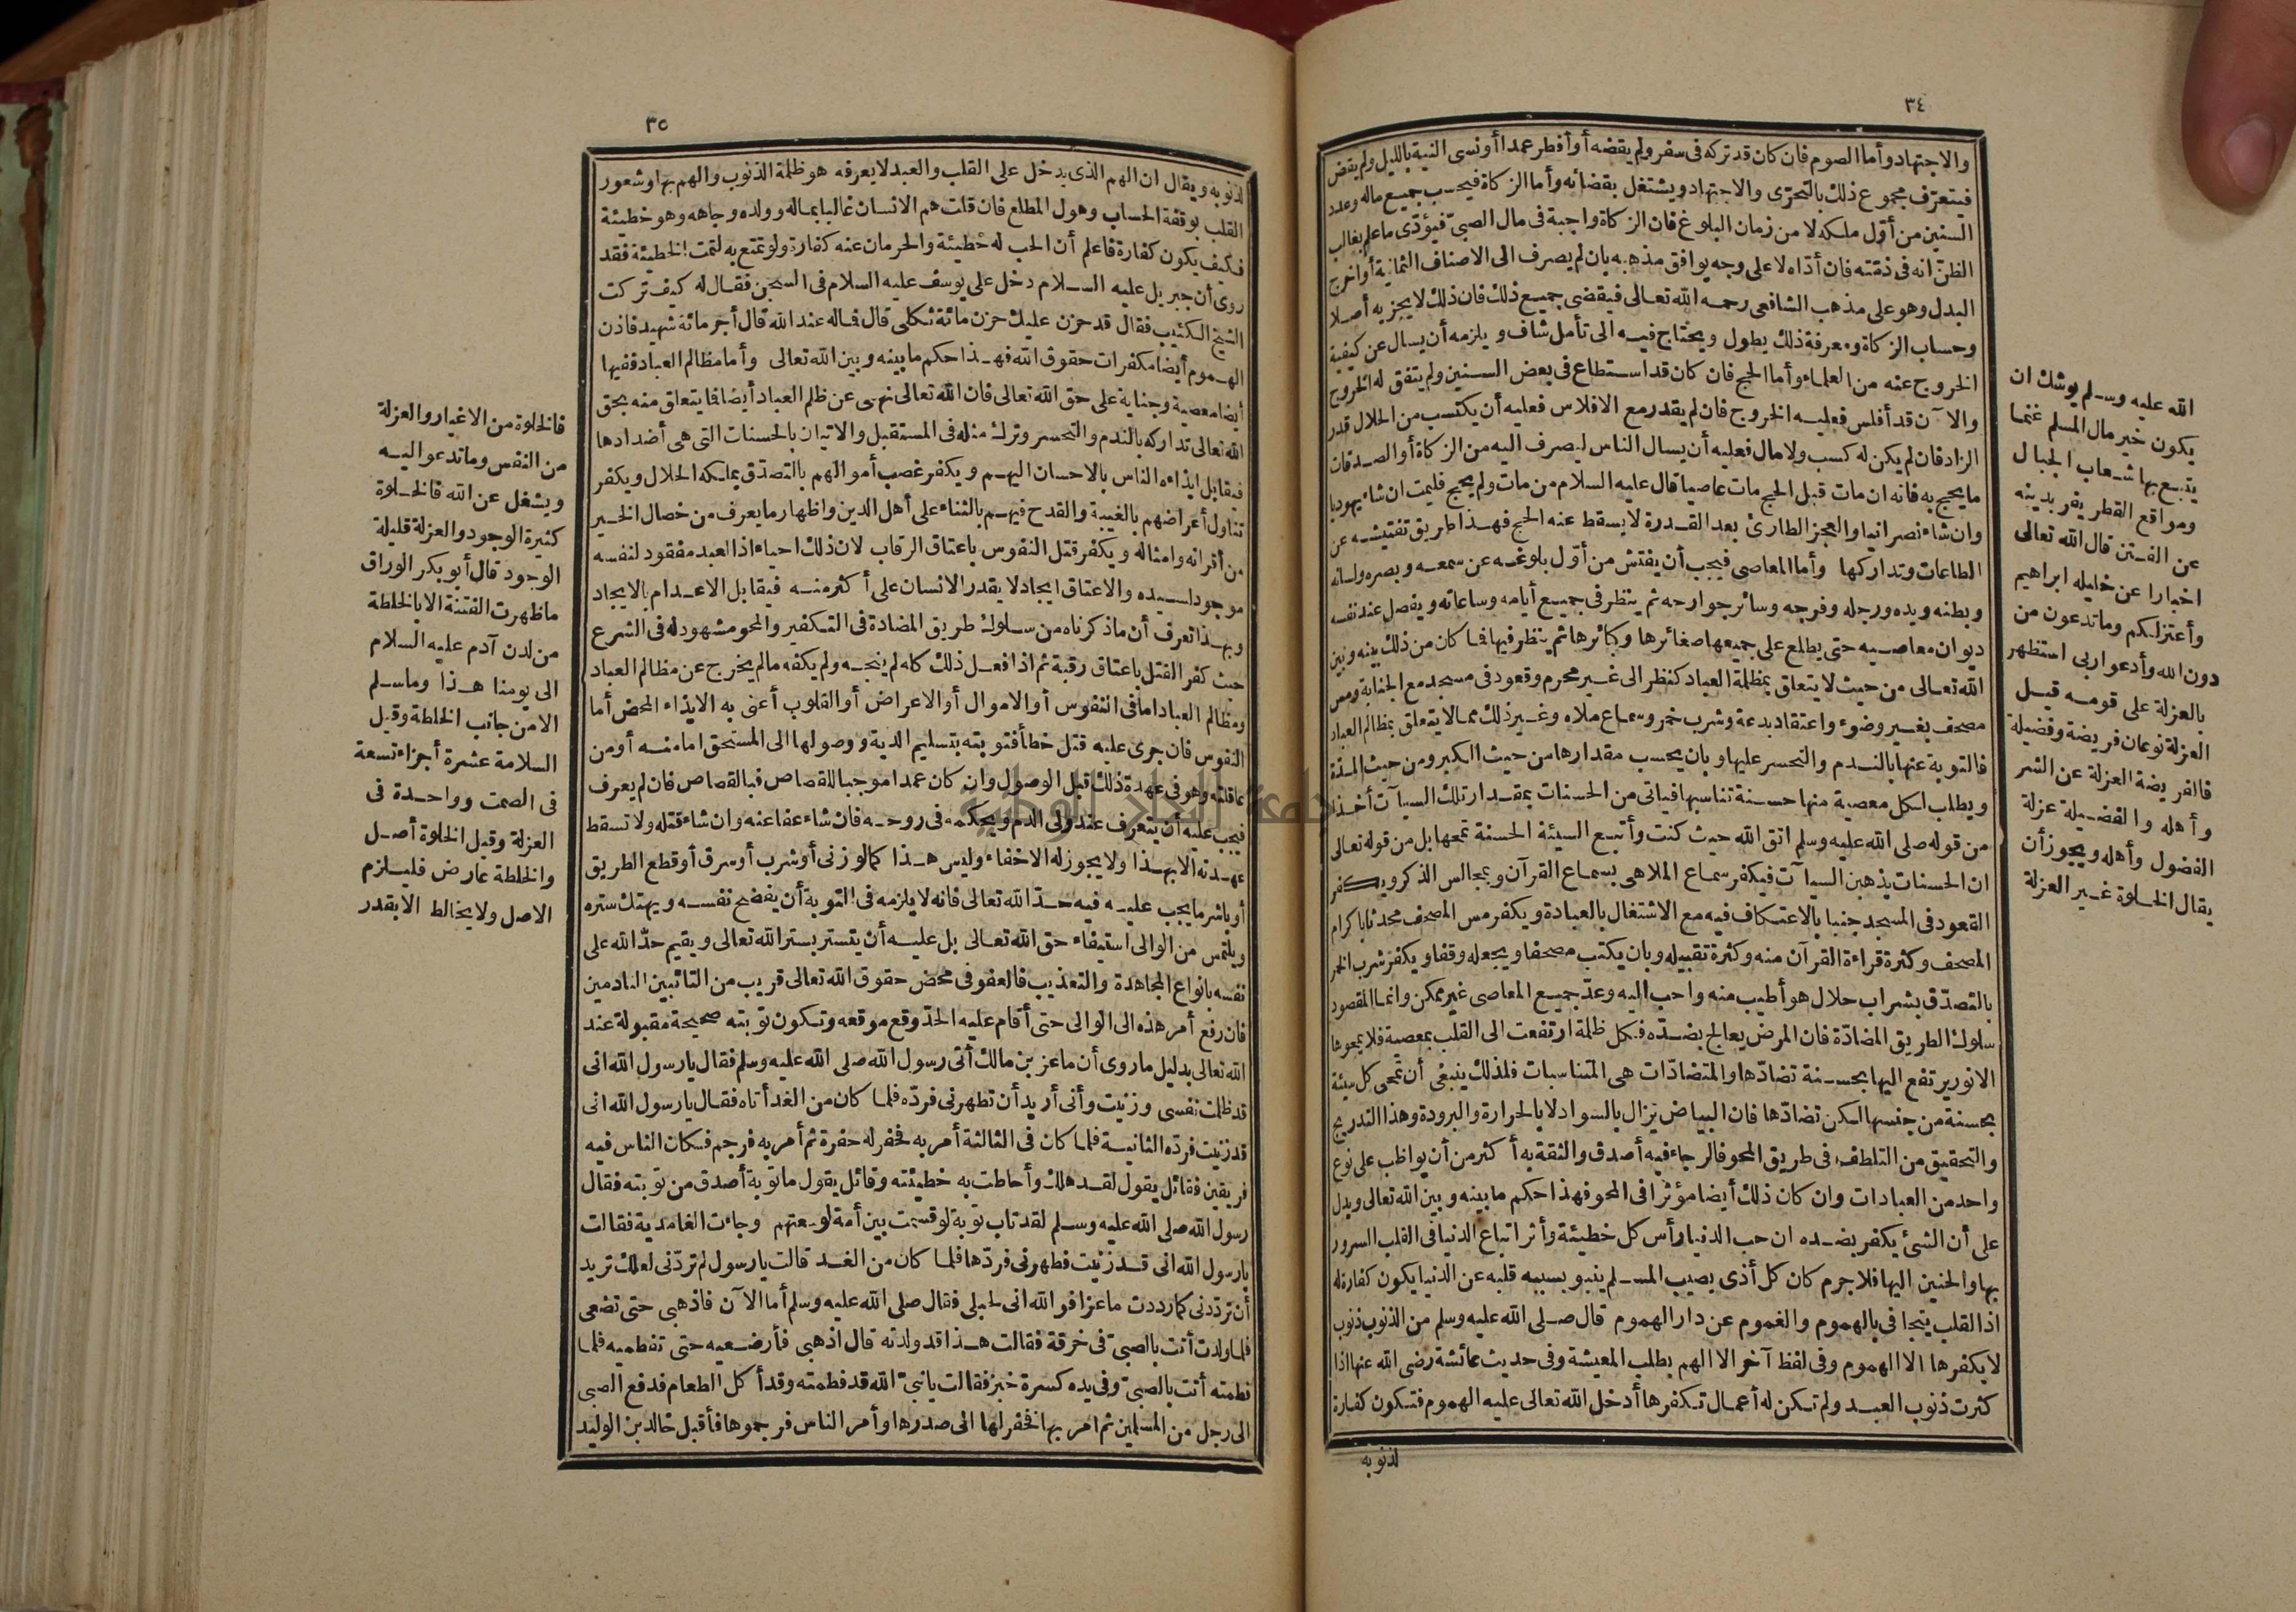 ٣٤
والاجتهاد وأما الصوم فان كان قد تركه فى سفر ولم يقضه أو أفطر عمدا أو نسى النية بالليل ولم يقض
فيتعرّف مجموع ذلك بالتحرّى والاجتهاد ويشتغل بقضائه وأما الزكاة فيحسب جميع ماله وعدد
السنين من أوّل ملكه لا من زمان البلوغ فان الزكاة واجبة فى مال الصبىّ فيؤدّى ما علم بغالب
الظنّ انه فى ذمّته فان أدّاه لا على وجه يوافق مذهبه بان لم يصرف الى الاصناف الثمانية أو أخرج
البدل وهو على مذهب الشافعى رحمه الله تعالى فيقضى جميع ذلك فان ذلك لا يجزيه أصلا
وحساب الزكاة ومعرفة ذلك يطول ويحتاج فيه الى تأمل شاف ويلزمه أن يسال عن كيفية
الخروج عنه من العلماء وأما الحج فان كان قد استطاع فى بعض السنين ولم يتفق له الخروج
والآن قد أفلس فعليه الخروج فان لم يقدر مع الافلاس فعليه أن يكتسب من الحلال قدر
الزاد فان لم يكن له كسب ولا مال فعليه أن يسال الناس ليصرف اليه من الزكاة أو الصدقات
ما يحج به فانه ان مات قبل الحج مات عاصيا قال عليه السلام من مات ولم يحج فليمت ان شاء يهوديا
وان شاء نصرانيا والعجز الطارئ بعد القدرة لا يسقط عنه الحج فهذا طريق تفتيشه عن
الطاعات وتداركها وأما المعاصى فيجب أن يفتش من أوّل بلوغه عن سمعه وبصره ولسانه
وبطنه ويده ورجله وفرجه وسائر جوارحه ثم ينظر فى جميع أيامه وساعاته ويفصل عند نفسه
ديوان معاصيه حتى يطلع على جميعها صغائرها وكبائرها ثم ينظر فيها فما كان من ذلك بينه وبين
الله تعالى من حيث لا يتعلق بمظلمة العباد كنظر الى غير محرم وقعود فى مسجد مع الجنابة ومس
مصحف بغير وضوء واعتقاد بدعة وشرب خمر وسماع ملاه وغير ذلك مما لا يتعلق بمظالم العباد
فالتوبة عنها بالندم والتحسر عليها وبان يحسب مقدارها من حيث الكبر ومن حيث المدّة
ويطلب لكل معصية منها حسنة تناسبها فياتى من الحسنات بمقدار تلك السيآت أخذا
من قوله صلى الله عليه وسلم اتق الله حيث كنت وأتبع السيئة الحسنة تمحها بل من قوله تعالى
ان الحسنات يذهبن السيآت فيكفر سماع الملاهى بسماع القرآن وبمجالس الذكر ويكفر
القعود فى المسجد جنبا بالاعتكاف فيه مع الاشتغال بالعبادة ويكفر مس المصحف محدثا باكرام
المصحف وكثرة قراءة القرآن منه وكثرة تقبيله وبان يكتب مصحفا ويجعله وقفا ويكفر شرب الخمر
بالتصدّق بشراب حلال هو أطيب منه واحب اليه وعدّ جميع المعاصى غير ممكن وانما المقصود
سلوك الطريق المضادّة فان المرض يعالج بضدّه فكل ظلمة ارتفعت الى القلب بمعصية فلا يمحوها
الا نور يرتفع اليها بحسنة تضادّها والمتضادّات هى المتناسبات فلذلك ينبغى أن تمحى كل سيئة
بحسنة من جنسها لكن تضادّها فان البياض يزال بالسواد لا بالحرارة والبرودة وهذا التدريج
والتحقيق من التلطف فى طريق المحو فالرجاء فيه أصدق والثقة به أكثر من أن يواظب على نوع
واحد من العبادات وان كان ذلك أيضا مؤثرا فى المحو فهذا حكم ما بينه وبين الله تعالى ويدل
على أن الشئ يكفر بضده ان حب الدنيا رأس كل خطيئة وأثر اتباع الدنيا فى القلب السرور
بها والحنين اليها فلا جرم كان كل أذى يصيب المسلم ينبو بسببه قلبه عن الدنيا يكون كفارة له
اذ القلب يتجافى بالهموم والغموم عن دار الهموم قال صلى الله عليه وسلم من الذنوب ذنوب
لا يكفرها الا الهموم وفى لفظ آخر الا الهم بطلب المعيشة وفى حديث عائشة رضى الله عنها اذا
كثرت ذنوب العبد ولم تكن له أعمال تكفرها أدخل الله تعالى عليه الهموم فتكون كفارة
لذنوبه
الله عليه وسلم يوشك ان
يكون خير مال المسلم غنما
يتبع بها شعاب الجبال
ومواقع القطر يفر بدينه
عن الفتن قال الله تعالى
اخبارا عن خليله ابراهيم
وأعتزلكم وما تدعون من
دون الله وأدعوا ربى استظهر
بالعزلة على قومه قيل
العزلة نوعان فريضة وفضيلة
فالفريضة العزلة عن الشر
وأهله والفضيلة عزلة
الفضول وأهله ويجوز أن
يقال الخلوة غير العزلة
٣٥
لذنوبه ويقال ان الهم الذى يدخل على القلب والعبد لا يعرفه هو ظلمة الذنوب والهم بها وشعور
القلب بوقفة الحساب وهول المطلع فان قلت هم الانسان غالبا بماله وولده وجاهه وهو خطيئة
فكيف يكون كفارة فاعلم أن الحب له خطيئة والحرمان عنه كفارة ولو تمتع به لتمت الخطيئة فقد
روى أن جبريل عليه السلام دخل على يوسف عليه السلام فى السجن فقال له كيف تركت
الشيخ الكئيب فقال قد حزن عليك حزن مائة ثكلى قال فماله عند الله قال أجر مائة شهيد فاذن
الهموم أيضا مكفرات حقوق الله فهذا حكم ما بينه وبين الله تعالى وأما مظالم العباد ففيها
أيضا معصية وجناية على حق الله تعالى فان الله تعالى نهى عن ظلم العباد أيضا فما يتعلق منه بحق
الله تعالى تداركه بالندم والتحسر وترك مثله فى المستقبل والاتيان بالحسنات التى هى أضدادها
فيقابل ايذاءه الناس بالاحسان اليهم ويكفر غصب أموالهم بالتصدّق بملكه الحلال ويكفر
تناول أعراضهم بالغيبة والقدح فيهم بالثناء على أهل الدين واظهار ما يعرف من خصال الخير
من أقرانه وامثاله ويكفر قتل النفوس باعتاق الرقاب لان ذلك احياء اذ العبد مفقود لنفسه
موجود لسيده والاعتاق ايجاد لا يقدر الانسان على أكثر منه فيقابل الاعدام بالايجاد
وبهذا تعرف أن ما ذكرناه من سلوك طريق المضادة فى التكفير والمحو مشهود له فى الشرع
حيث كفر القتل باعتاق رقبة ثم اذا فعل ذلك كله لم ينجه ولم يكفه ما لم يخرج عن مظالم العباد
ومظالم العباد اما فى النفوس أو الاموال أو الاعراض أو القلوب أعنى به الايذاء المحض أما
النفوس فان جرى عليه قتل خطأ فتوبته بتسليم الدية ووصولها الى المستحق اما منه أو من
عاقلته وهو فى عهدة ذلك قبل الوصول وان كان عمدا موجبا للقصاص فبالقصاص فان لم يعرف
فيجب عليه أن يتعرف عند ولى الدم ويحكمه فى روحه فان شاء عفا عنه وان شاء قتله ولا تسقط
عهدته الا بهذا ولا يجوز له الاخفاء وليس هذا كما لو زنى أو شرب أو سرق أو قطع الطريق
أو باشر ما يجب عليه فيه حدّ الله تعالى فانه لا يلزمه فى التوبة أن يفضح نفسه ويهتك ستره
ويلتمس من الوالى استيفاء حق الله تعالى بل عليه أن يتستر بستر الله تعالى ويقيم حدّ الله على
نفسه بانواع المجاهدة والتعذيب فالعفو فى محض حقوق الله تعالى قريب من التائبين النادمين
فان رفع أمر هذه الى الوالى حتى أقام عليه الحدّ وقع موقعه وتكون توبته صحيحة مقبولة عند
الله تعالى بدليل ما روى أن ماعز بن مالك أتى رسول الله صلى الله عليه وسلم فقال يا رسول الله انى
قد ظلمت نفسى وزنيت وأنى أريد أن تطهرنى فردّه فلما كان من الغد أتاه فقال يا رسول الله انى
قد زنيت فردّه الثانية فلما كان فى الثالثة أمر به فحفر له حفرة ثم أمر به فرجم فكان الناس فيه
فريقين فقائل يقول لقد هلك وأحاطت به خطيئته وقائل يقول ما توبة أصدق من توبته فقال
رسول الله صلى الله عليه وسلم لقد تاب توبة لو قسمت بين أمة لوسعتهم وجاءت الغامدية فقالت
يا رسول الله انى قد زنيت فطهرنى فردّها فلما كان من الغد قالت يا رسول لم تردّنى لعلك تريد
أن تردّدنى كما رددت ماعزا فوالله انى لحبلى فقال صلى الله عليه وسلم أما الآن فاذهبى حتى تضعى
فلما ولدت أتت بالصبىّ فى خرقة فقالت هذا قد ولدته قال اذهبى فأرضعيه حتى تفطميه فلما
فطمته أتت بالصبىّ وفى يده كسرة خبز فقالت يا نبىّ الله قد فطمته وقد أكل الطعام فدفع الصبى
الى رجل من المسلمين ثم امر بها فحفر لها الى صدرها وأمر الناس فرجموها فأقبل خالد بن الوليد
فالخلوة من الاغيار والعزلة
من النفس وما تدعو اليه
ويشغل عن الله فالخلوة
كثيرة الوجود والعزلة قليلة
الوجود قال أبو بكر الوراق
ما ظهرت الفتنة الا بالخلطة
من لدن آدم عليه السلام
الى يومنا هذا وما سلم
الا من جانب الخلطة وقيل
السلامة عشرة أجزاء تسعة
فى الصمت وواحدة فى
العزلة وقيل الخلوة أصل
والخلطة عارض فليلزم
الاصل ولا يخالط الا بقدر